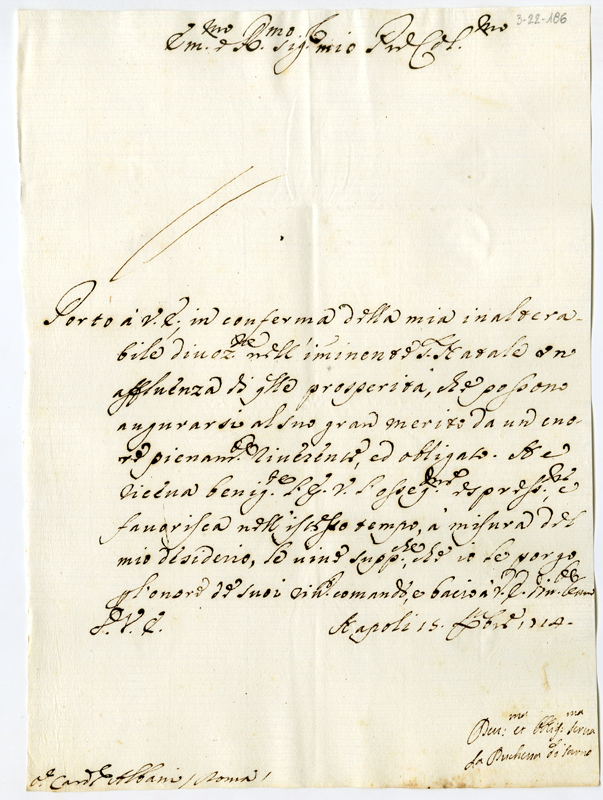 3-22-186
Em.mo e R.mo Sig. mio P.rõn Col.mo
Porto à V.E. in conferma della mia inaltera-
bile divoz.ne nell'iminente S. Natale un
affluenza di q.lle prosperità, che possono
augurarsi al suo gran merito da un cuo-
re pienam.te riverente, ed obligato. Ne
riceva benig.te l'E.V. l'osseq. espress. e
favorisca nell'istesso tempo, a misura del
mio desiderio, le vive supp.che che io le porgo
p l'onore de suoi riv. comandi, e bacio à V.E.
D.V.E. Napoli 15. Xbre 1714.
Dev.ma et Oblig.ma serva
La Duchessa di
S.r Card.le Albani / Roma /